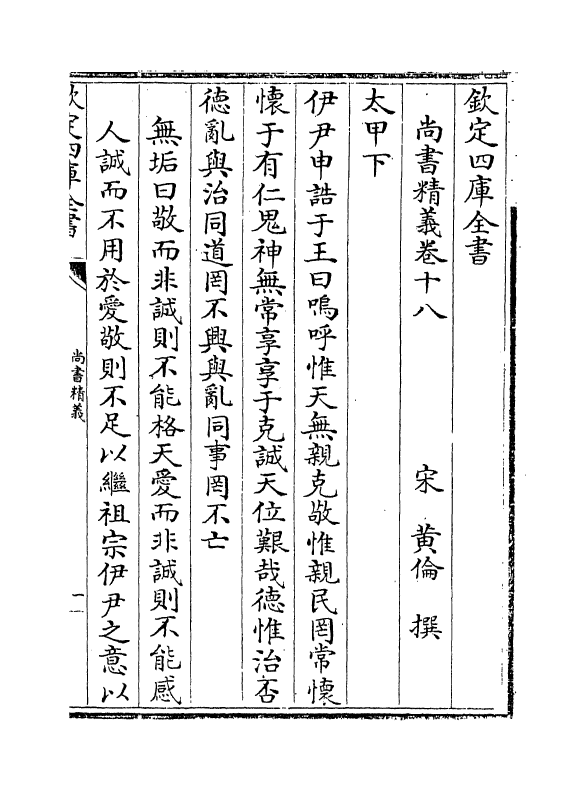 欽定四庫全書
尚書精義卷十八
宋 黃倫 撰
太甲下
伊尹申誥于王曰嗚呼惟天無親克敬惟親民罔常懷
懷于有仁鬼神無常享享于克誠天位艱哉德惟治否
德亂與治同道罔不興與亂同事罔不亡
無垢曰敬而非誠則不能格天愛而非誠則不能感
人誠而不用於愛敬則不足以繼祖宗伊尹之意以
欽定四庫全書
尚書精義
一